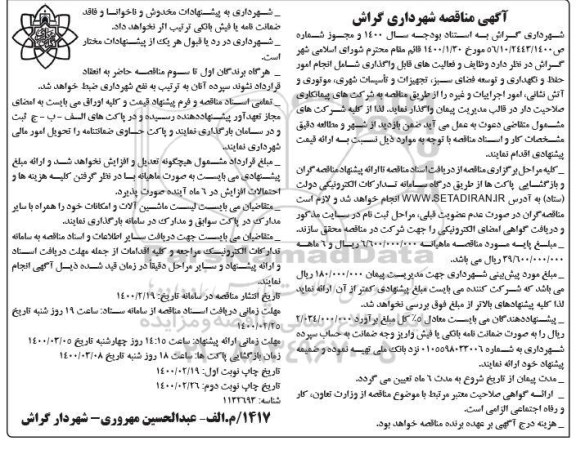 آگهی مناقصه شهرداری گراش
شهرداری گراش به استناد بودجه سال ۱۴۰۰ و مجوز شماره
۵۶/۱۰/۲۴۴۳/ص۱۴۰۰ مورخ ۱۴۰۰/۱/۳۰ قائم مقام محترم شورای اسلامی شهر
گراش در نظر دارد وظایف و فعالیت های قابل واگذاری شامل انجام امور
حفظ و نگهداری و توسعه فضای سبز، تجهیزات و تأسیسات شهری، موتوری و
آتش نشانی، امور اجراییات و غیره را از طریق مناقصه به شرکت های پیمانکاری
صلاحیت دار در قالب مدیریت پیمان واگذار نماید. لذا از کلیه شرکت های
مشمول متقاضی دعوت به عمل می آید ضمن بازدید از شهر و مطالعه دقیق
مشخصات کار و اسناد مناقصه با توجه به موارد ذیل نسبت به ارائه قیمت
پیشنهادی اقدام نمایند.
_ کلیه مراحل برگزاری مناقصه از دریافت اسناد مناقصه تا ارائه پیشنهاد مناقصه گران
و بازگشایی پاکت ها از طریق درگاه سامانه تدارکات الکترونیکی دولت
(ستاد) به آدرس WWW.SETADIRAN.IR انجام خواهد شد و لازم است
مناقصه گران در صورت عدم عضویت قبلی، مراحل ثبت نام در سایت مذکور
و دریافت گواهی امضای الکترونیکی را جهت شرکت در مناقصه محقق سازند.
_ مبلغ پایه مورد مناقصه ماهیانه ۶/۶۰۰/۰۰۰/۰۰۰ ریال و ۶ ماهه
۳۹/۶۰۰/۰۰۰/۰۰۰ ریال می باشد.
_ مبلغ مورد پیش بینی شهرداری جهت مدیریت پیمان ۱۸۰/۰۰۰/۰۰۰ ریال
می باشد که شرکت کننده می بایست مبلغ پیشنهادی کمتر از آن، ارائه نماید
لذا کلیه پیشنهادهای بالاتر از مبلغ فوق بررسی نخواهد شد.
_ پیشنهاددهندگان می بایست معادل ۵٪ کل مبلغ برآورد ۲/۰۳۴/۰۰۰/۰۰۰
ریال را به صورت ضمانت نامه بانکی یا فیش واریز وجه ضمانت به حساب سپرده
شهرداری به شماره ۰۱۰۵۵۹۸۰۳۳۰۰۶ نزد بانک ملی تهیه نموده و ضمیمه
پیشنهاد خود ارائه نمایند.
_ مدت پیمان از تاریخ شروع به مدت ۶ ماه تعیین می گردد.
_ ارائه گواهی صلاحیت معتبر مرتبط با موضوع مناقصه از وزارت تعاون، کار
و رفاه اجتماعی الزامی است.
_ هزینه درج آگهی بر عهده برنده مناقصه خواهد بود.
_ شهرداری به پیشنهادات مخدوش و ناخوانا و فاقد
ضمانت نامه یا فیش بانکی ترتیب اثر نخواهد داد.
_ شهرداری در رد یا قبول هر یک از پیشنهادات مختار
است.
_ هرگاه برندگان اول تا سوم مناقصه حاضر به انعقاد
قرارداد نشوند سپرده آنان به ترتیب به نفع شهرداری ضبط خواهد شد.
_ تمامی اسناد مناقصه و فرم پیشنهاد قیمت و کلیه اوراق می بایست به امضای
مجاز تعهدآور پیشنهاددهنده رسیده و در پاکت های الف - ب - ج ثبت
و در سامان بارگذاری نمایند و پاکت حاوی ضمانتنامه را تحویل امور مالی
شهرداری نمایند.
_ مبلغ قرارداد مشمول هیچگونه تعدیل و افزایش نخواهد شد و ارائه مبلغ
پیشنهادی می بایست به صورت ماهیانه با در نظر گرفتن کلیه هزینه ها و
احتمالات افزایش در ۶ ماه آینده صورت پذیرد.
_ متقاضیان می بایست لیست ماشین آلات و امکانات خود را همراه با سایر
مدارک در پاکت سوابق و مدارک در سامانه بارگذاری نمایند.
_ متقاضیان می بایست جهت دریافت سایر اطلاعات و اسناد مناقصه به سامانه
تدارکات الکترونیک مراجعه و کلیه اقدامات از جمله مهلت دریافت اسناد
و ارائه پیشنهاد و سایر مراحل دقیقاً در زمان قید شده ذیل آگهی انجام
نمایند.
تاریخ انتشار مناقصه در سامانه تاریخ: ۱۴۰۰/۲/۱۹
مهلت زمانی دریافت اسناد مناقصه از سامانه ستاد: ساعت ۱۹ روز شنبه تاریخ
۱۴۰۰/۰۲/۲۵
مهلت زمانی ارائه پیشنهاد: ساعت ۱۴:۱۵ روز چهارشنبه تاریخ ۱۴۰۰/۰۳/۰۵
زمان بازگشایی پاکت ها: ساعت ۱۸ روز شنبه تاریخ ۱۴۰۰/۰۳/۰۸
تاریخ چاپ نوبت اول: ۱۴۰۰/۰۲/۱۹
تاریخ چاپ نوبت دوم: ۱۴۰۰/۰۲/۲۶
شناسه: ۱۱۳۲۶۹۳
۱۴۱۷/م.الف- عبدالحسین مهروری- شهردار گراش